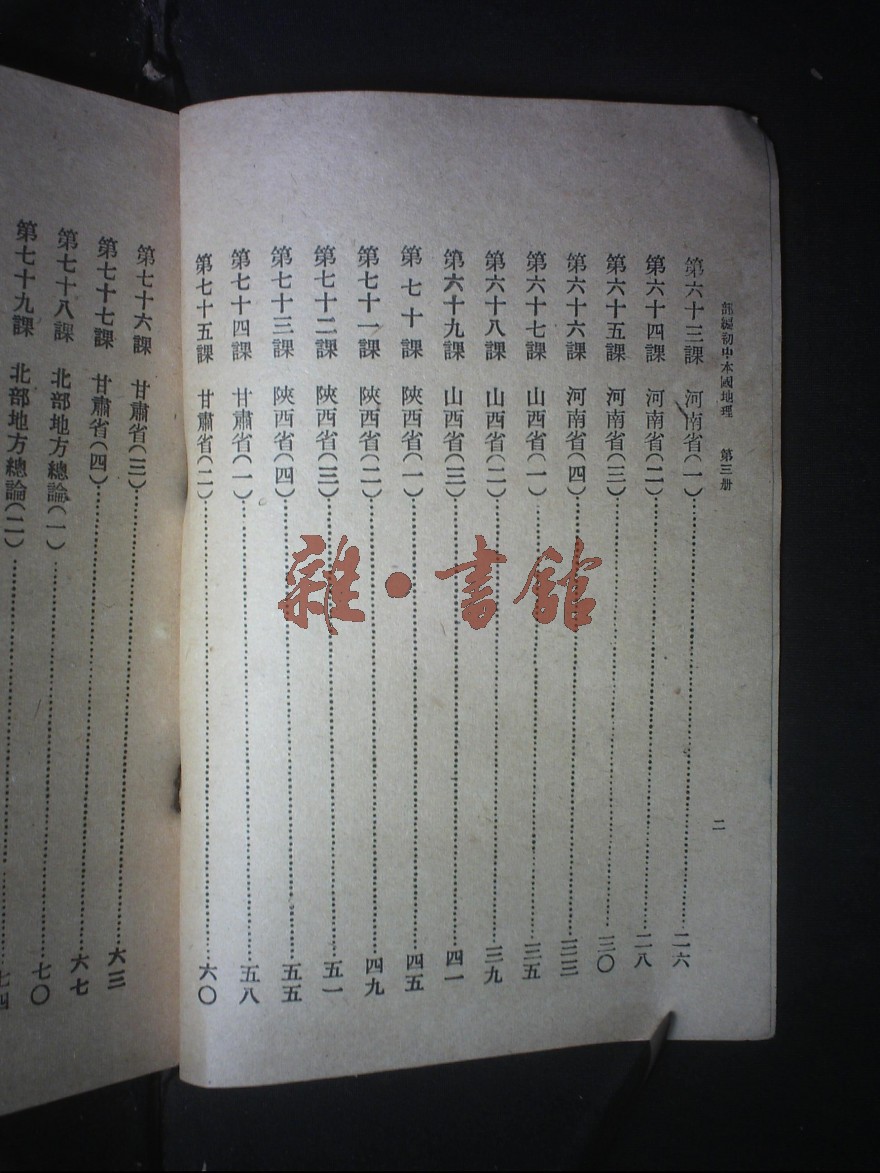 部編初中本國地理 第三册 二
第六十三課 河南省(一)…………二六
第六十四課 河南省(二)…………二八
第六十五課 河南省(三)…………三〇
第六十六課 河南省(四)…………三三
第六十七課 山西省(一)…………三五
第六十八課 山西省(二)…………三九
第六十九課 山西省(三)…………四一
第七十課 陝西省(一)…………四五
第七十一課 陝西省(二)…………四九
第七十二課 陝西省(三)…………五一
第七十三課 陝西省(四)…………五五
第七十四課 甘肅省(一)…………五八
第七十五課 甘肅省(二)…………六〇
第七十六課 甘肅省(三)…………六三
第七十七課 甘肅省(四)…………六七
第七十八課 北部地方總論(一)…………七〇
第七十九課 北部地方總論(二)…………七四
雜·書館